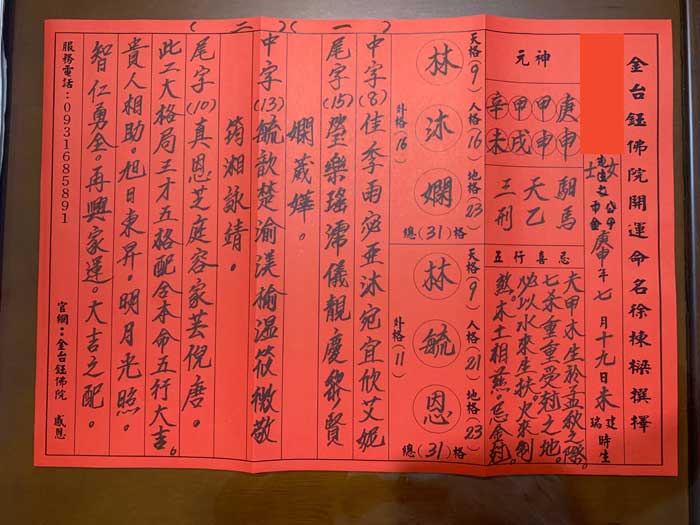 金台鈺佛院開運命名徐棟樑撰擇
女士
庚申年七月十九日未時生
建瑞
元神
庚申
甲申
甲戌
辛未
馹馬
天乙
三刑
五行喜忌
夫甲木生於孟秋之際。
七杀重重受尅之地。
必以水來生扶。火來制
煞。木土相兼。忌金尅。
天格(9) 人格(16) 地格(23)
林沐嫻
外格(16)
總(31)格
天格(9) 人格(21) 地格(23)
林毓恩
外格(11)
總(31)格
(一)
中字(8)佳季雨宓亞沐宛宜欣艾妮
尾字(15)瑩樂瑤霈儀靚慶黎賢
嫻葳嬅。
(二)
中字(13)毓歆楚渝渼榆溫筱微敬
筠湘詠靖。
尾字(10)真恩芝庭容家芸倪唐。
此二大格局三才五格配合本命五行大吉。
貴人相助。旭日東昇。明月光照。
智仁勇全。再興家運。大吉之配。
服務電話：0931685891
官網：金台鈺佛院 感恩